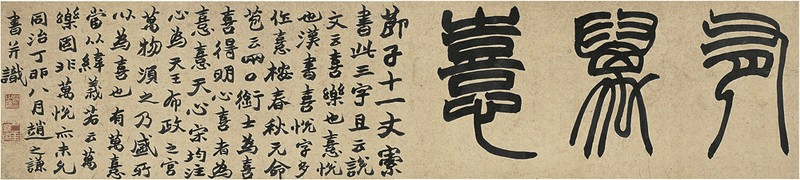 有萬憙
節子十一丈索
書此三字且云說
文云喜樂也憙悅
也漢書喜悅字多
作憙春秋元命
苞云兩口銜士為喜
喜得明心喜者為
憙憙天心宋均注
心為天王布政之宮
萬物須之乃盛所
以為喜也有萬憙
當以緯義若云萬
樂固非萬悅亦未允
同治丁卯八月趙之謙
書并識